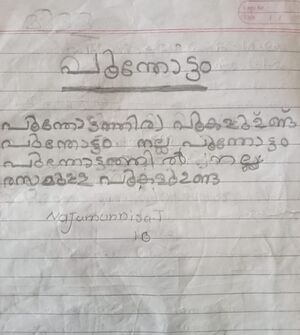 പൂന്തോട്ടം
പൂന്തോട്ടത്തിൽ പൂകളുണ്ട്
പൂന്തോട്ടം നല്ല പൂന്തോട്ടം
പൂന്തോട്ടത്തിൽ നല്ല
രസമുള്ള പൂകളുണ്ട
Najumunnisa T
1B